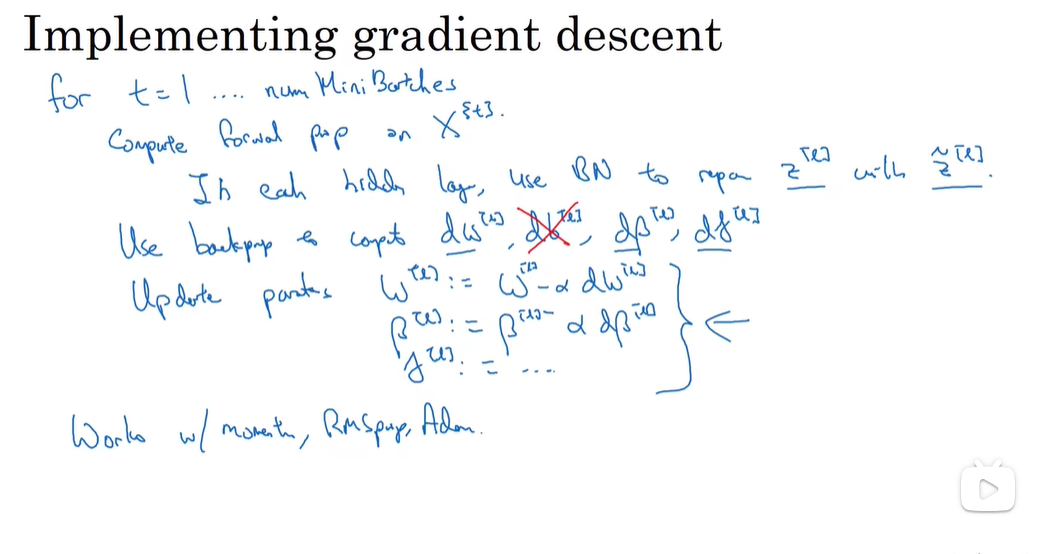 Implementing gradient descent
for t = 1 .... num Mini Batches
Compute forward prop on X^{t}.
In each hidden lay, use BN to repar z^[l] with z̃^[l].
Use backprop to compt dw^[l], db^[l], dβ^[l], dγ^[l]
Update partes w^[l] := w^[l] - α dw^[l]
β^[l] := β^[l] - α dβ^[l]
γ^[l] := ....
Works w/ momentm, RMSprop, Adam.